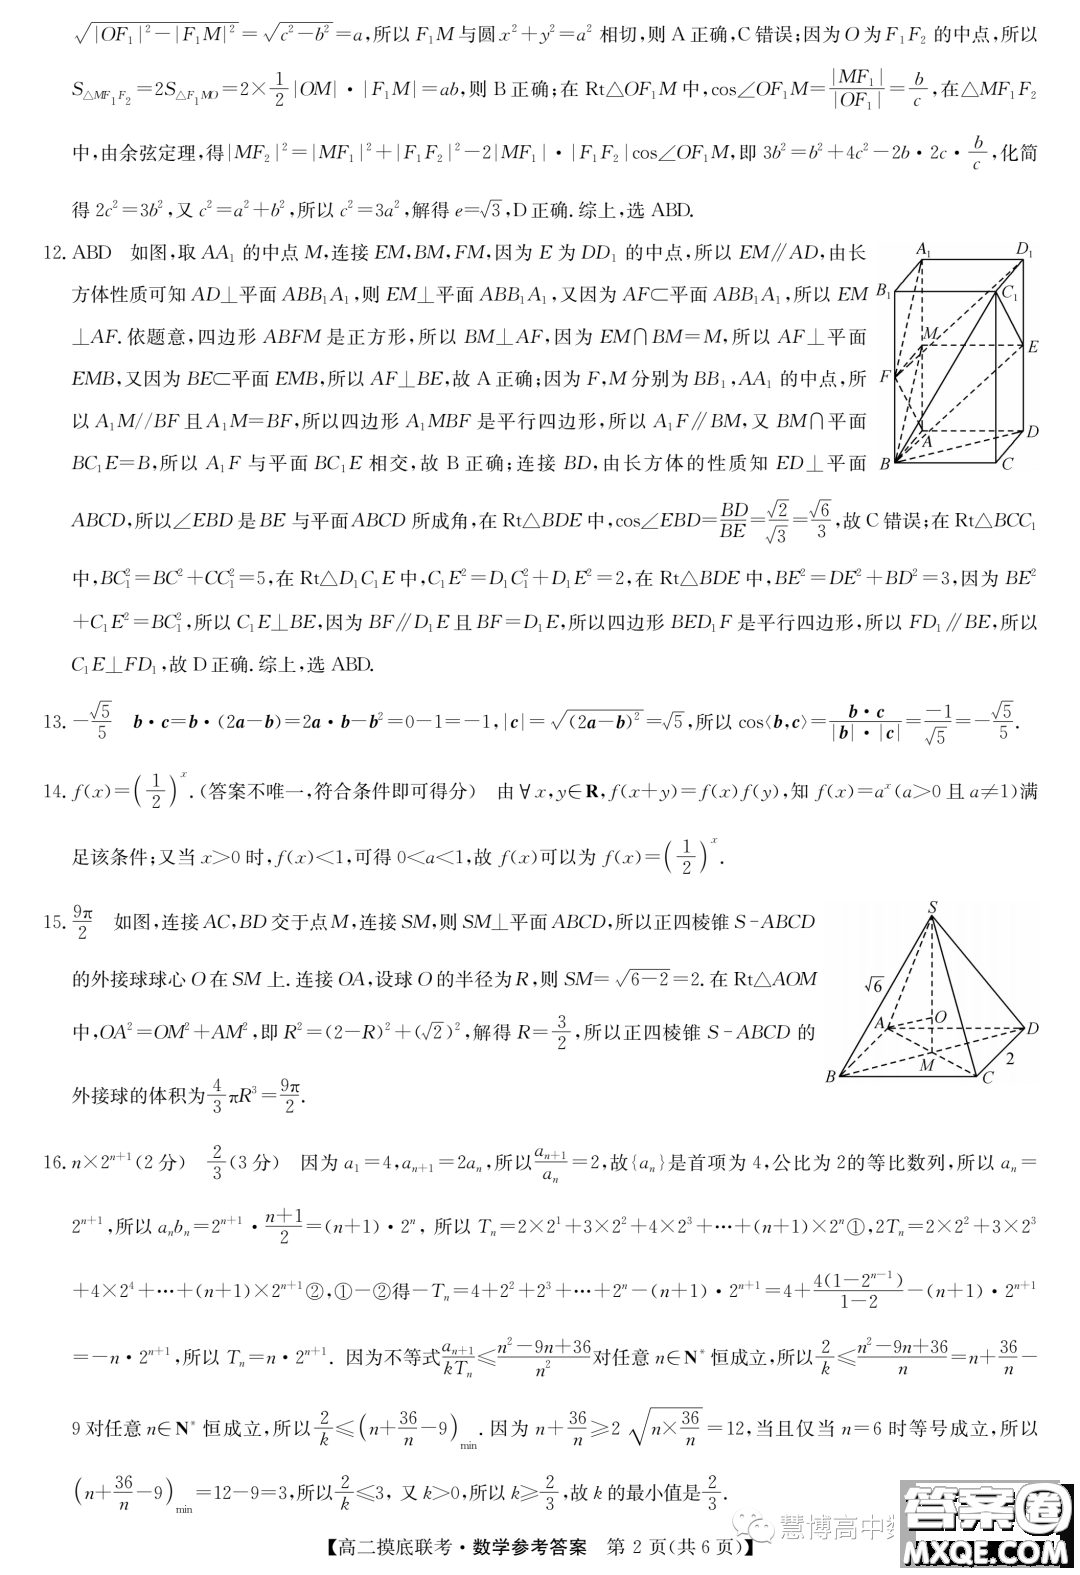 √(|OF₁|²－|F₁M|²)＝√(c²－b²)＝a,所以 F₁M 与圆 x²＋y²＝a² 相切,则 A 正确,C 错误;因为 O 为 F₁F₂ 的中点,所以
S△MF₁F₂＝2S△F₁MO＝2×1/2|OM|·|F₁M|＝ab,则 B 正确;在 Rt△OF₁M 中,cos∠OF₁M＝|MF₁|/|OF₁|＝b/c,在△MF₁F₂
中,由余弦定理,得|MF₂|²＝|MF₁|²＋|F₁F₂|²－2|MF₁|·|F₁F₂|cos∠OF₁M,即 3b²＝b²＋4c²－2b·2c·b/c,化简
得 2c²＝3b²,又 c²＝a²＋b²,所以 c²＝3a²,解得 e＝√3,D 正确.综上,选 ABD.
12. ABD 如图,取 AA₁ 的中点 M,连接 EM,BM,FM,因为 E 为 DD₁ 的中点,所以 EM∥AD,由长
方体性质可知 AD⊥平面 ABB₁A₁,则 EM⊥平面 ABB₁A₁,又因为 AF⊂平面 ABB₁A₁,所以 EM
⊥AF.依题意,四边形 ABFM 是正方形,所以 BM⊥AF,因为 EM∩BM＝M,所以 AF⊥平面
EMB,又因为 BE⊂平面 EMB,所以 AF⊥BE,故 A 正确;因为 F,M 分别为 BB₁,AA₁ 的中点,所
以 A₁M//BF 且 A₁M＝BF,所以四边形 A₁MBF 是平行四边形,所以 A₁F∥BM,又 BM∩平面
BC₁E＝B,所以 A₁F 与平面 BC₁E 相交,故 B 正确;连接 BD,由长方体的性质知 ED⊥平面
ABCD,所以∠EBD 是 BE 与平面 ABCD 所成角,在 Rt△BDE 中,cos∠EBD＝BD/BE＝√2/√3＝√6/3,故 C 错误;在 Rt△BCC₁
中,BC₁²＝BC²＋CC₁²＝5,在 Rt△D₁C₁E 中,C₁E²＝D₁C₁²＋D₁E²＝2,在 Rt△BDE 中,BE²＝DE²＋BD²＝3,因为 BE²
＋C₁E²＝BC₁²,所以 C₁E⊥BE,因为 BF∥D₁E 且 BF＝D₁E,所以四边形 BED₁F 是平行四边形,所以 FD₁∥BE,所以
C₁E⊥FD₁,故 D 正确.综上,选 ABD.
A₁ D₁
B₁ C₁
M
E
F
A D
B C
13. －√5/5 b·c＝b·(2a－b)＝2a·b－b²＝0－1＝－1,|c|＝√(2a－b)²＝√5,所以 cos⟨b,c⟩＝b·c/|b|·|c|＝－1/√5＝－√5/5.
14. f(x)＝(1/2)ˣ.(答案不唯一,符合条件即可得分) 由∀x,y∈R,f(x＋y)＝f(x)f(y),知 f(x)＝aˣ(a＞0 且 a≠1)满
足该条件;又当 x＞0 时,f(x)＜1,可得 0＜a＜1,故 f(x)可以为 f(x)＝(1/2)ˣ.
15. 9π/2 如图,连接 AC,BD 交于点 M,连接 SM,则 SM⊥平面 ABCD,所以正四棱锥 S-ABCD
的外接球球心 O 在 SM 上.连接 OA,设球 O 的半径为 R,则 SM＝√(6－2)＝2.在 Rt△AOM
中,OA²＝OM²＋AM²,即 R²＝(2－R)²＋(√2)²,解得 R＝3/2,所以正四棱锥 S-ABCD 的
外接球的体积为4/3πR³＝9π/2.
S
√6
A O D
2
M
B C
16. n×2ⁿ⁺¹(2 分) 2/3(3 分) 因为 a₁＝4,aₙ₊₁＝2aₙ,所以aₙ₊₁/aₙ＝2,故{aₙ}是首项为 4,公比为 2的等比数列,所以 aₙ＝
2ⁿ⁺¹,所以 aₙbₙ＝2ⁿ⁺¹·(n＋1)/2＝(n＋1)·2ⁿ, 所以 Tₙ＝2×2¹＋3×2²＋4×2³＋…＋(n＋1)×2ⁿ①,2Tₙ＝2×2²＋3×2³
＋4×2⁴＋…＋(n＋1)×2ⁿ⁺¹②,①－②得－Tₙ＝4＋2²＋2³＋…＋2ⁿ－(n＋1)·2ⁿ⁺¹＝4＋4(1－2ⁿ⁻¹)/(1－2)－(n＋1)·2ⁿ⁺¹
＝－n·2ⁿ⁺¹,所以 Tₙ＝n·2ⁿ⁺¹. 因为不等式aₙ₊₁/kTₙ≤(n²－9n＋36)/n²对任意 n∈N* 恒成立,所以2/k≤(n²－9n＋36)/n＝n＋36/n－
9 对任意 n∈N* 恒成立,所以2/k≤(n＋36/n－9)min.因为 n＋36/n≥2√(n×36/n)＝12,当且仅当 n＝6 时等号成立,所以
(n＋36/n－9)min＝12－9＝3,所以2/k≤3, 又 k＞0,所以 k≥2/3,故 k 的最小值是2/3.
慧博高中数
答案圈
MXQE.COM
【高二摸底联考·数学参考答案 第 2 页(共 6 页)】